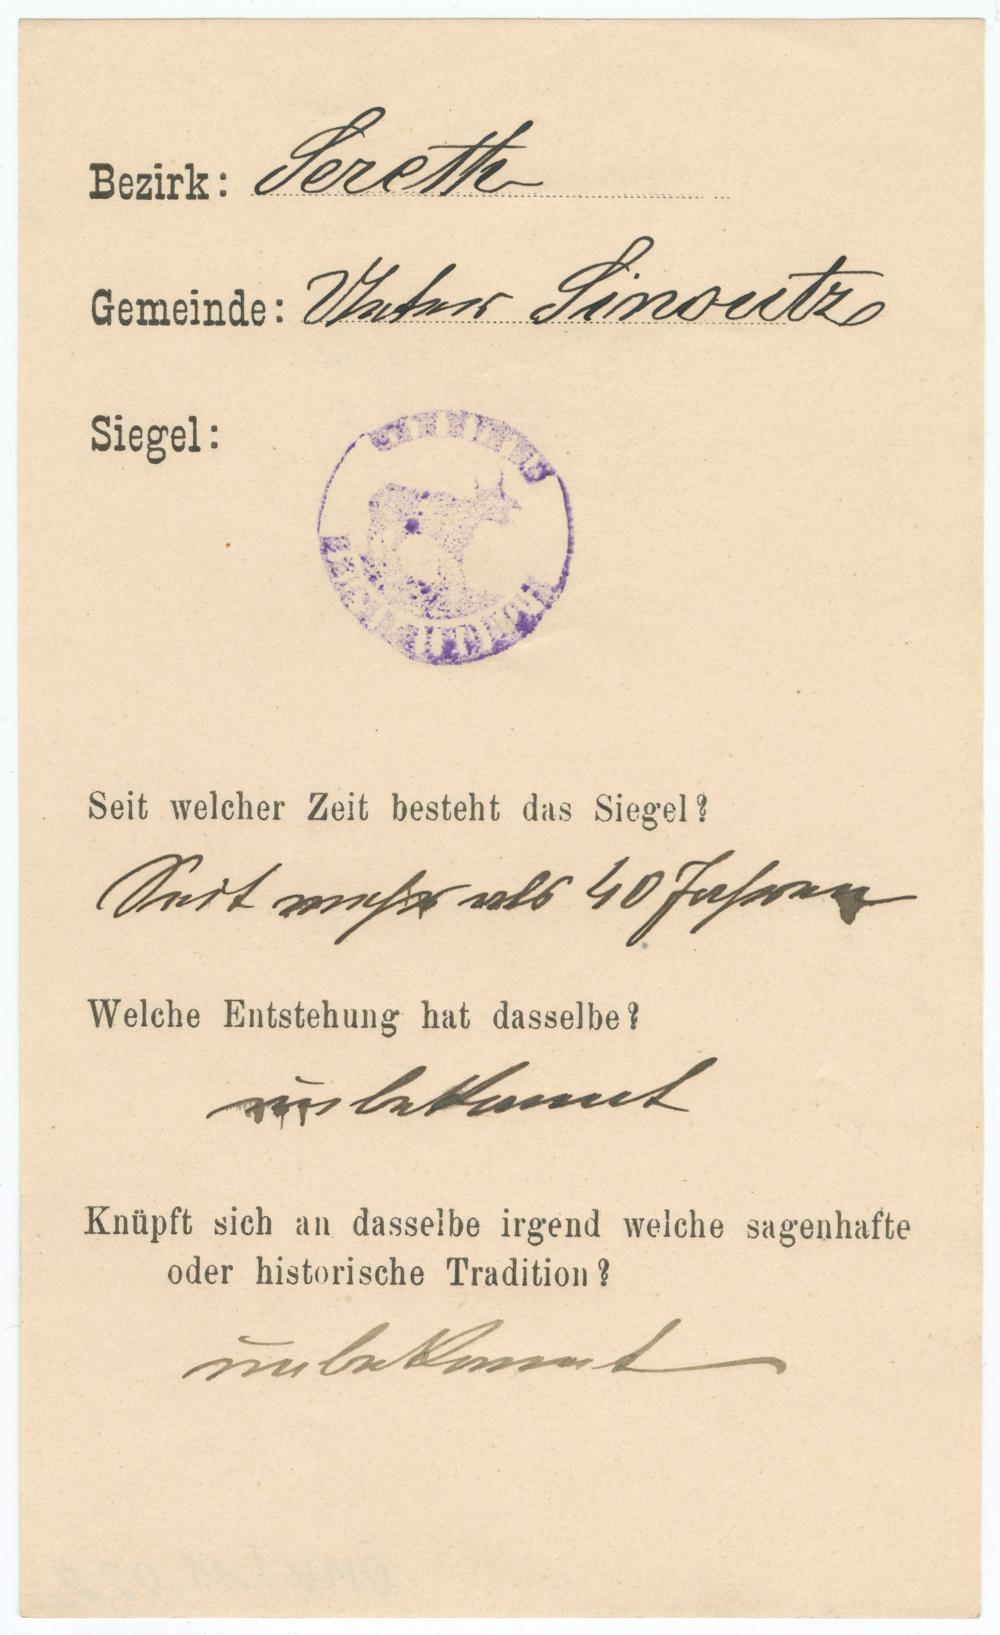 Bezirk: Sereth
Gemeinde: Unter Sinoutz
Siegel:
Seit welcher Zeit besteht das Siegel?
Seit mehr als 40 Jahren
Welche Entstehung hat dasselbe?
unbekannt
Knüpft sich an dasselbe irgend welche sagenhafte
oder historische Tradition?
unbekannt